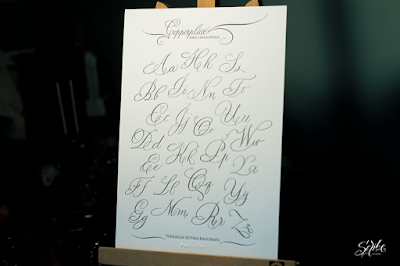 Copperplate
Aa Hh Ss
Bb Ii Nn Tt
Cc Jj Oo Uu
Dd Kk Pp Ww
Ee Xx
Ff Ll Qq Yy
Gg Mm Rr Zz
Fundacja Sztuka Kaligrafii